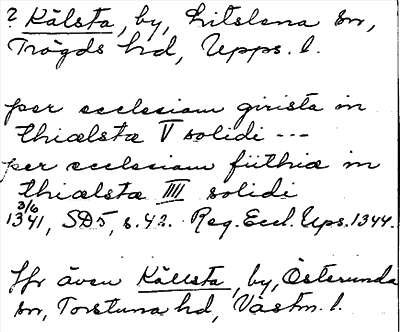 ? Kälsta, by, Litslena sn,
Trögds hd, Upps. l.
per ecclesiam girista in
thiælstæ V solidi ---
per ecclesiam fiithiæ in
thiælstæ IIII solidi
3/6
1341, SD5, s.42. Reg. Eccl. Ups. 1344.
Jfr även Källsta, by, Österunda
sn, Torstuna hd, Västm. l.